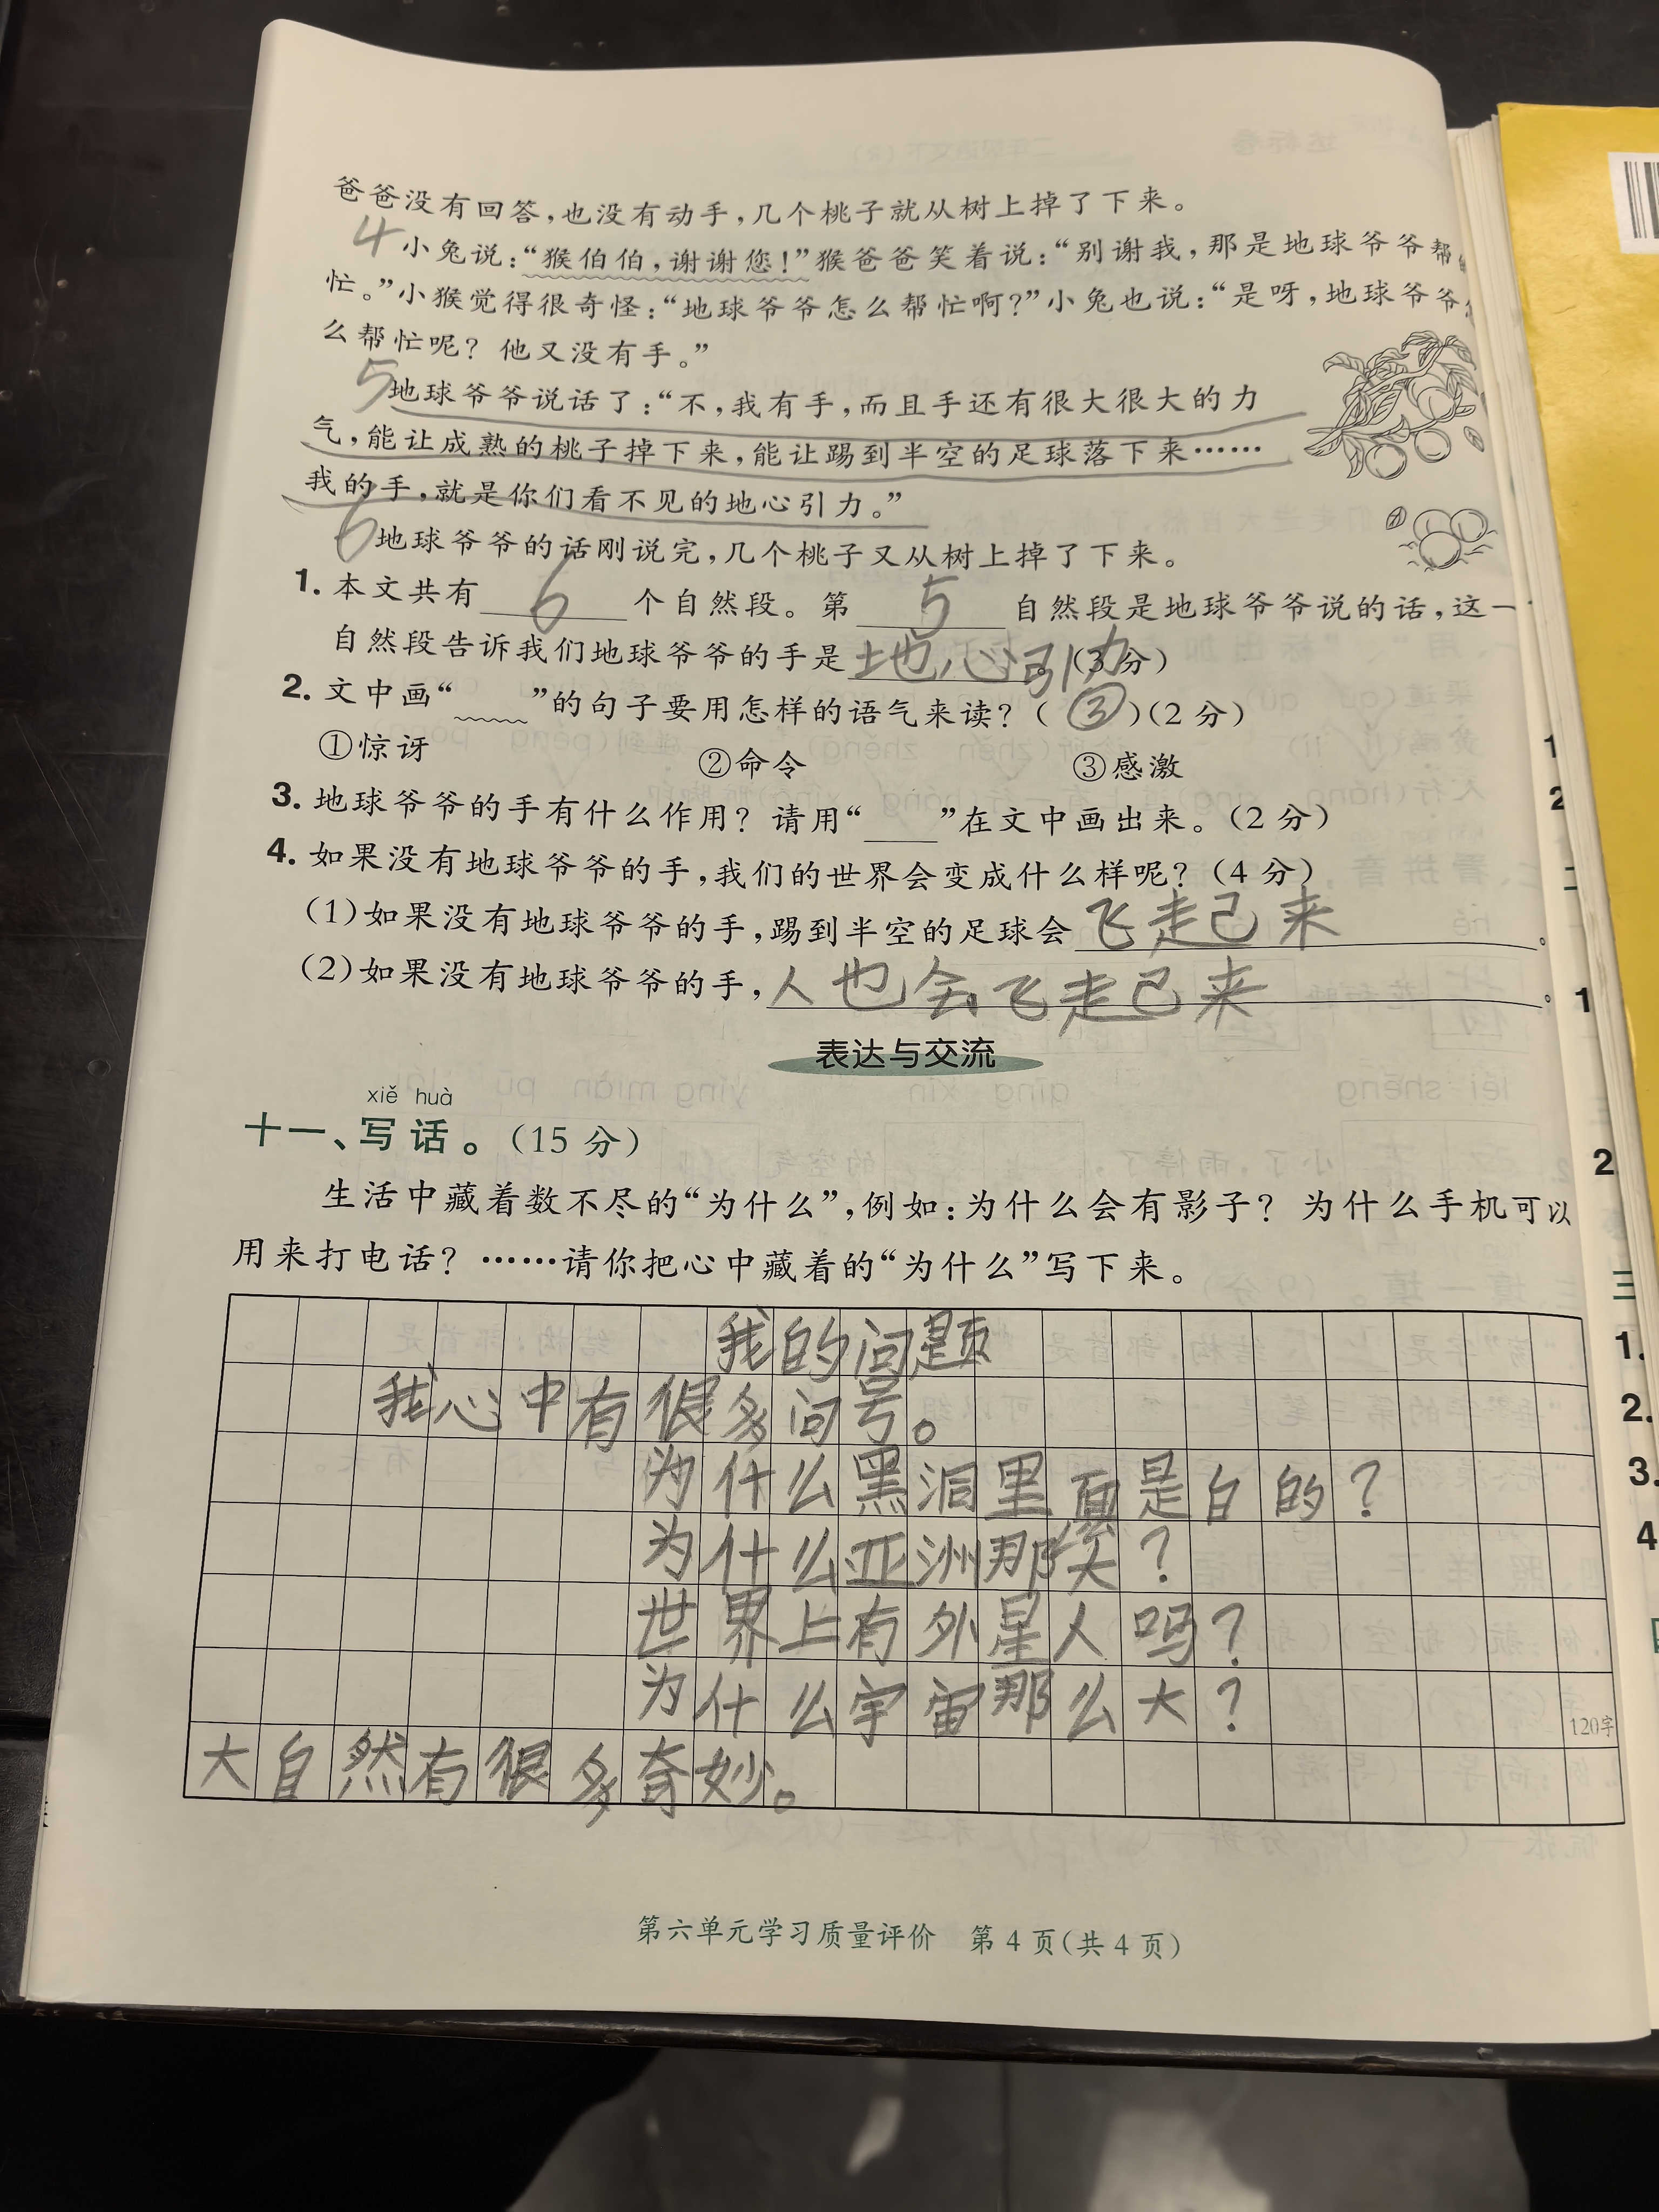 爸爸没有回答，也没有动手，几个桃子就从树上掉了下来。
4 小兔说：“猴伯伯，谢谢您！”猴爸爸笑着说：“别谢我，那是地球爷爷帮
忙。”小猴觉得很奇怪：“地球爷爷怎么帮忙啊？”小兔也说：“是呀，地球爷爷
么帮忙呢？他又没有手。”
5 地球爷爷说话了：“不，我有手，而且手还有很大很大的力
气，能让成熟的桃子掉下来，能让踢到半空的足球落下来……
我的手，就是你们看不见的地心引力。”
6 地球爷爷的话刚说完，几个桃子又从树上掉了下来。
1. 本文共有 6 个自然段。第 5 自然段是地球爷爷说的话，这一
自然段告诉我们地球爷爷的手是 地心引力 。（3分）
2. 文中画“﹏﹏”的句子要用怎样的语气来读？（ ③ ）（2分）
①惊讶 ②命令 ③感激
3. 地球爷爷的手有什么作用？请用“___”在文中画出来。（2分）
4. 如果没有地球爷爷的手，我们的世界会变成什么样呢？（4分）
（1）如果没有地球爷爷的手，踢到半空的足球会 飞走己来 。
（2）如果没有地球爷爷的手，人也会飞走己来 。
表达与交流
xiě huà
十一、写话。（15分）
生活中藏着数不尽的“为什么”，例如：为什么会有影子？为什么手机可以
用来打电话？……请你把心中藏着的“为什么”写下来。
我的问题
我心中有很多问号。
为什么黑洞里面是白的？
为什么亚洲那大？
世界上有外星人吗？
为什么宇宙那么大？
120字
大自然有很多奇妙。
第六单元学习质量评价 第4页（共4页）
1
2
1
2
三
1.
2.
3.
4